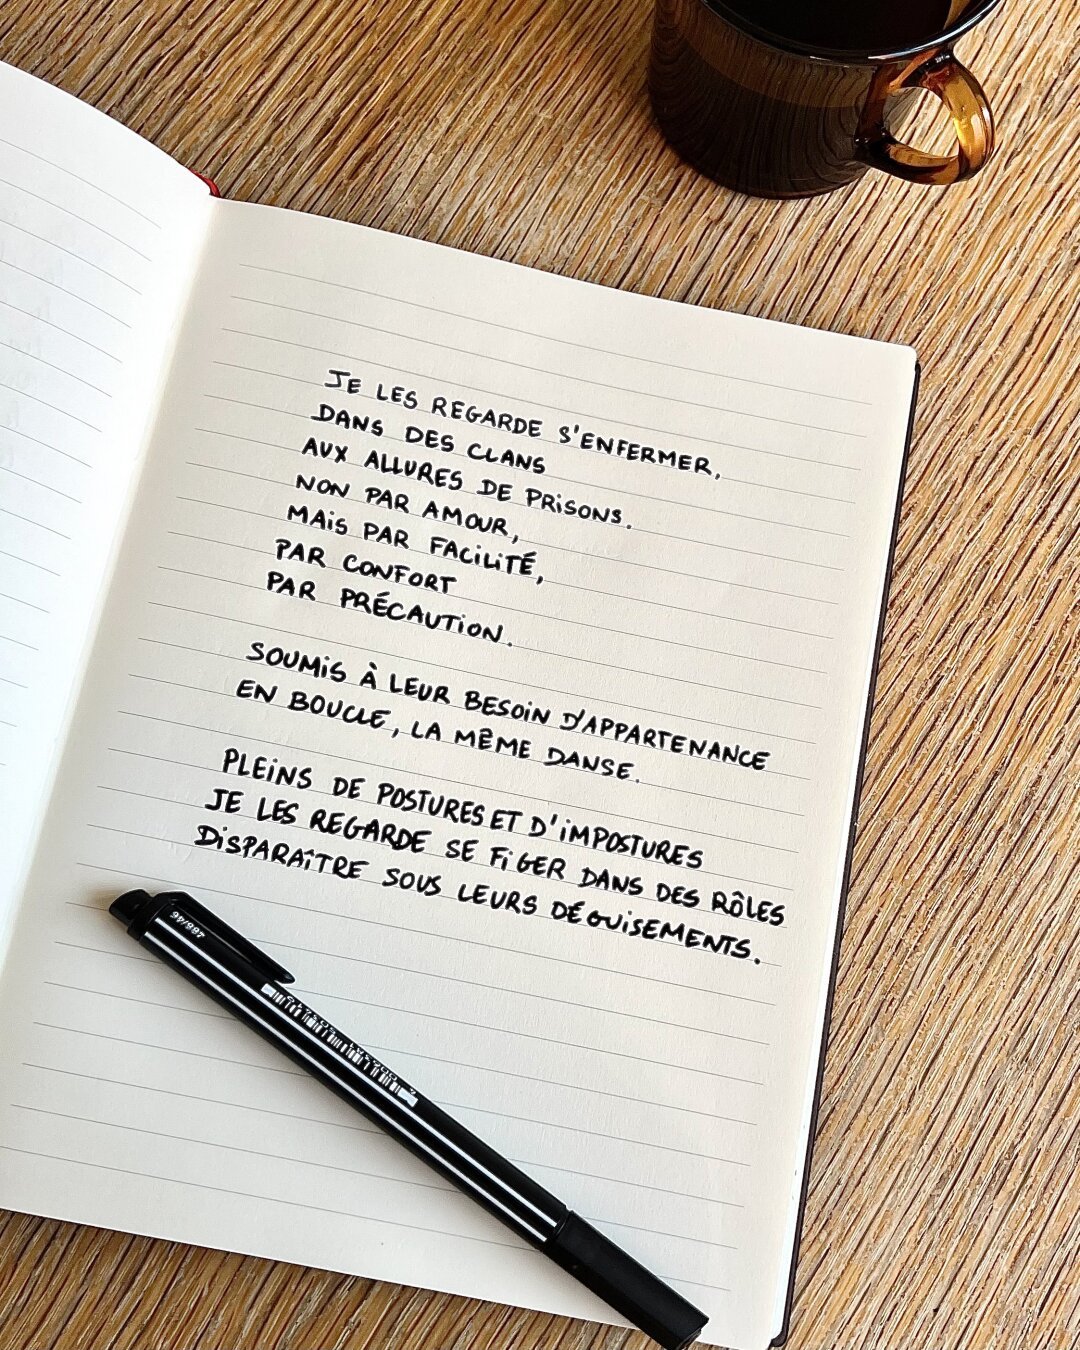 JE LES REGARDE S'ENFERMER,
DANS DES CLANS
AUX ALLURES DE PRISONS.
NON PAR AMOUR,
MAIS PAR FACILITÉ,
PAR CONFORT
PAR PRÉCAUTION.
SOUMIS À LEUR BESOIN D'APPARTENANCE
EN BOUCLE, LA MÊME DANSE.
PLEINS DE POSTURES ET D'IMPOSTURES
JE LES REGARDE SE FIGER DANS DES RÔLES
DISPARAÎTRE SOUS LEURS DÉGUISEMENTS.
488/46